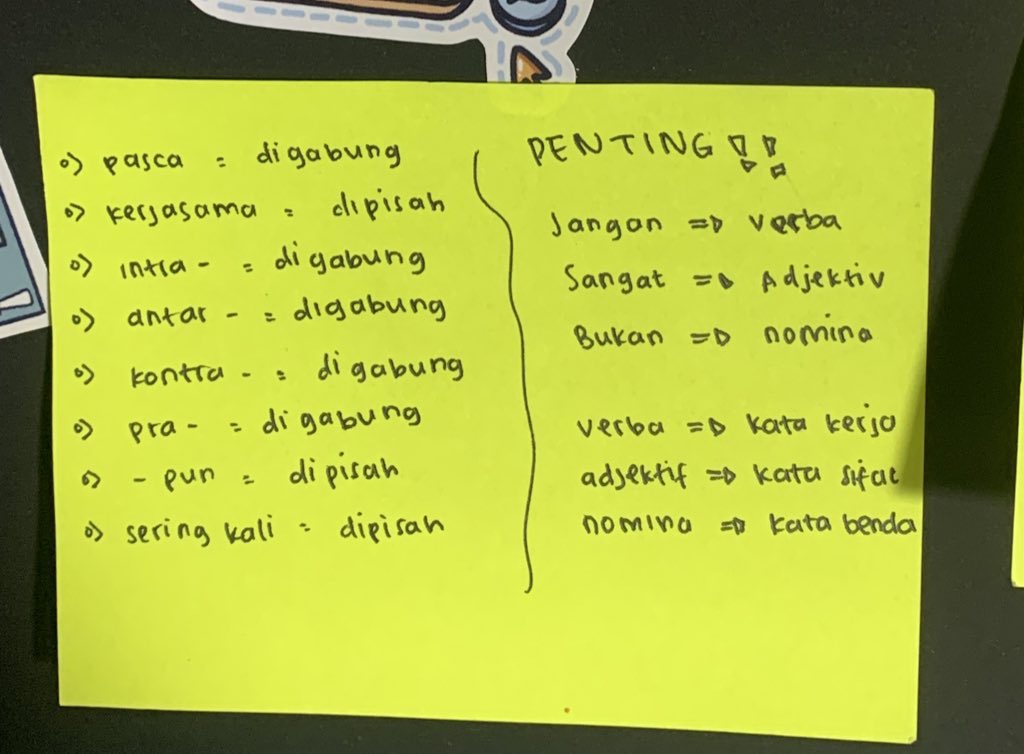 o) pasca = digabung
o) kerjasama = dipisah
o) intra - = digabung
o) antar - = digabung
o) kontra - = digabung
o) pra - = digabung
o) - pun = dipisah
o) sering kali = dipisah
PENTING !!
Jangan => verba
Sangat => Adjektiv
Bukan => nomina
verba => kata kerja
adjektif => kata sifat
nomina => kata benda